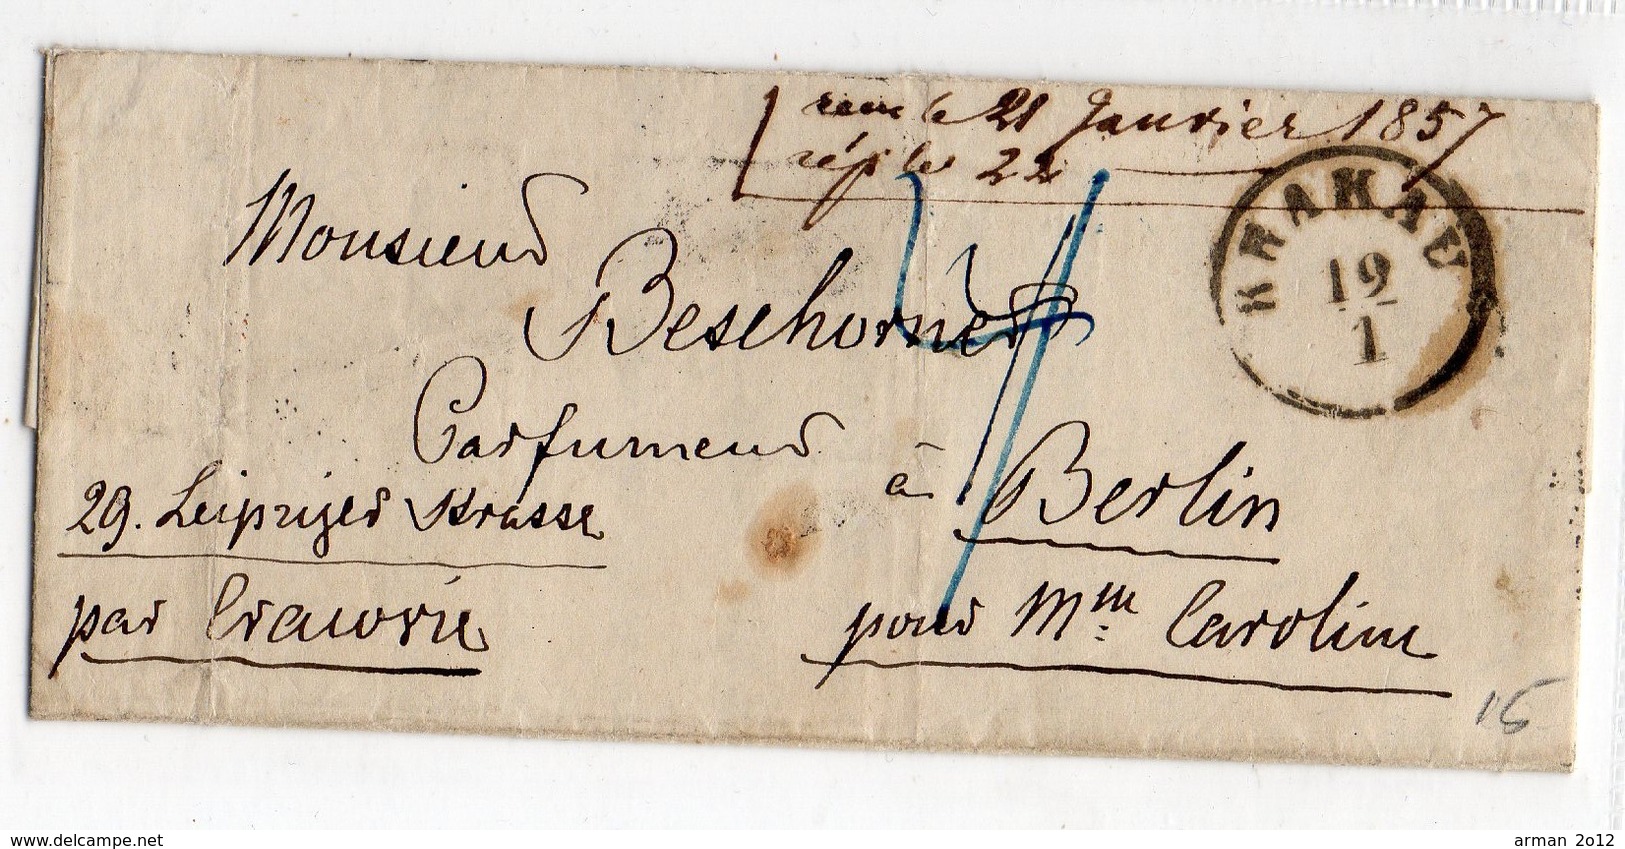 reçu le 21 Janvier 1857
rép le 22
KRAKAU
19
1
Monsieur
Beschorner
Parfumeur
à Berlin
29. Leipziger Strasse
par Cracovie
pour Mm: Caroline
15
www.delcampe.net
arman 2012